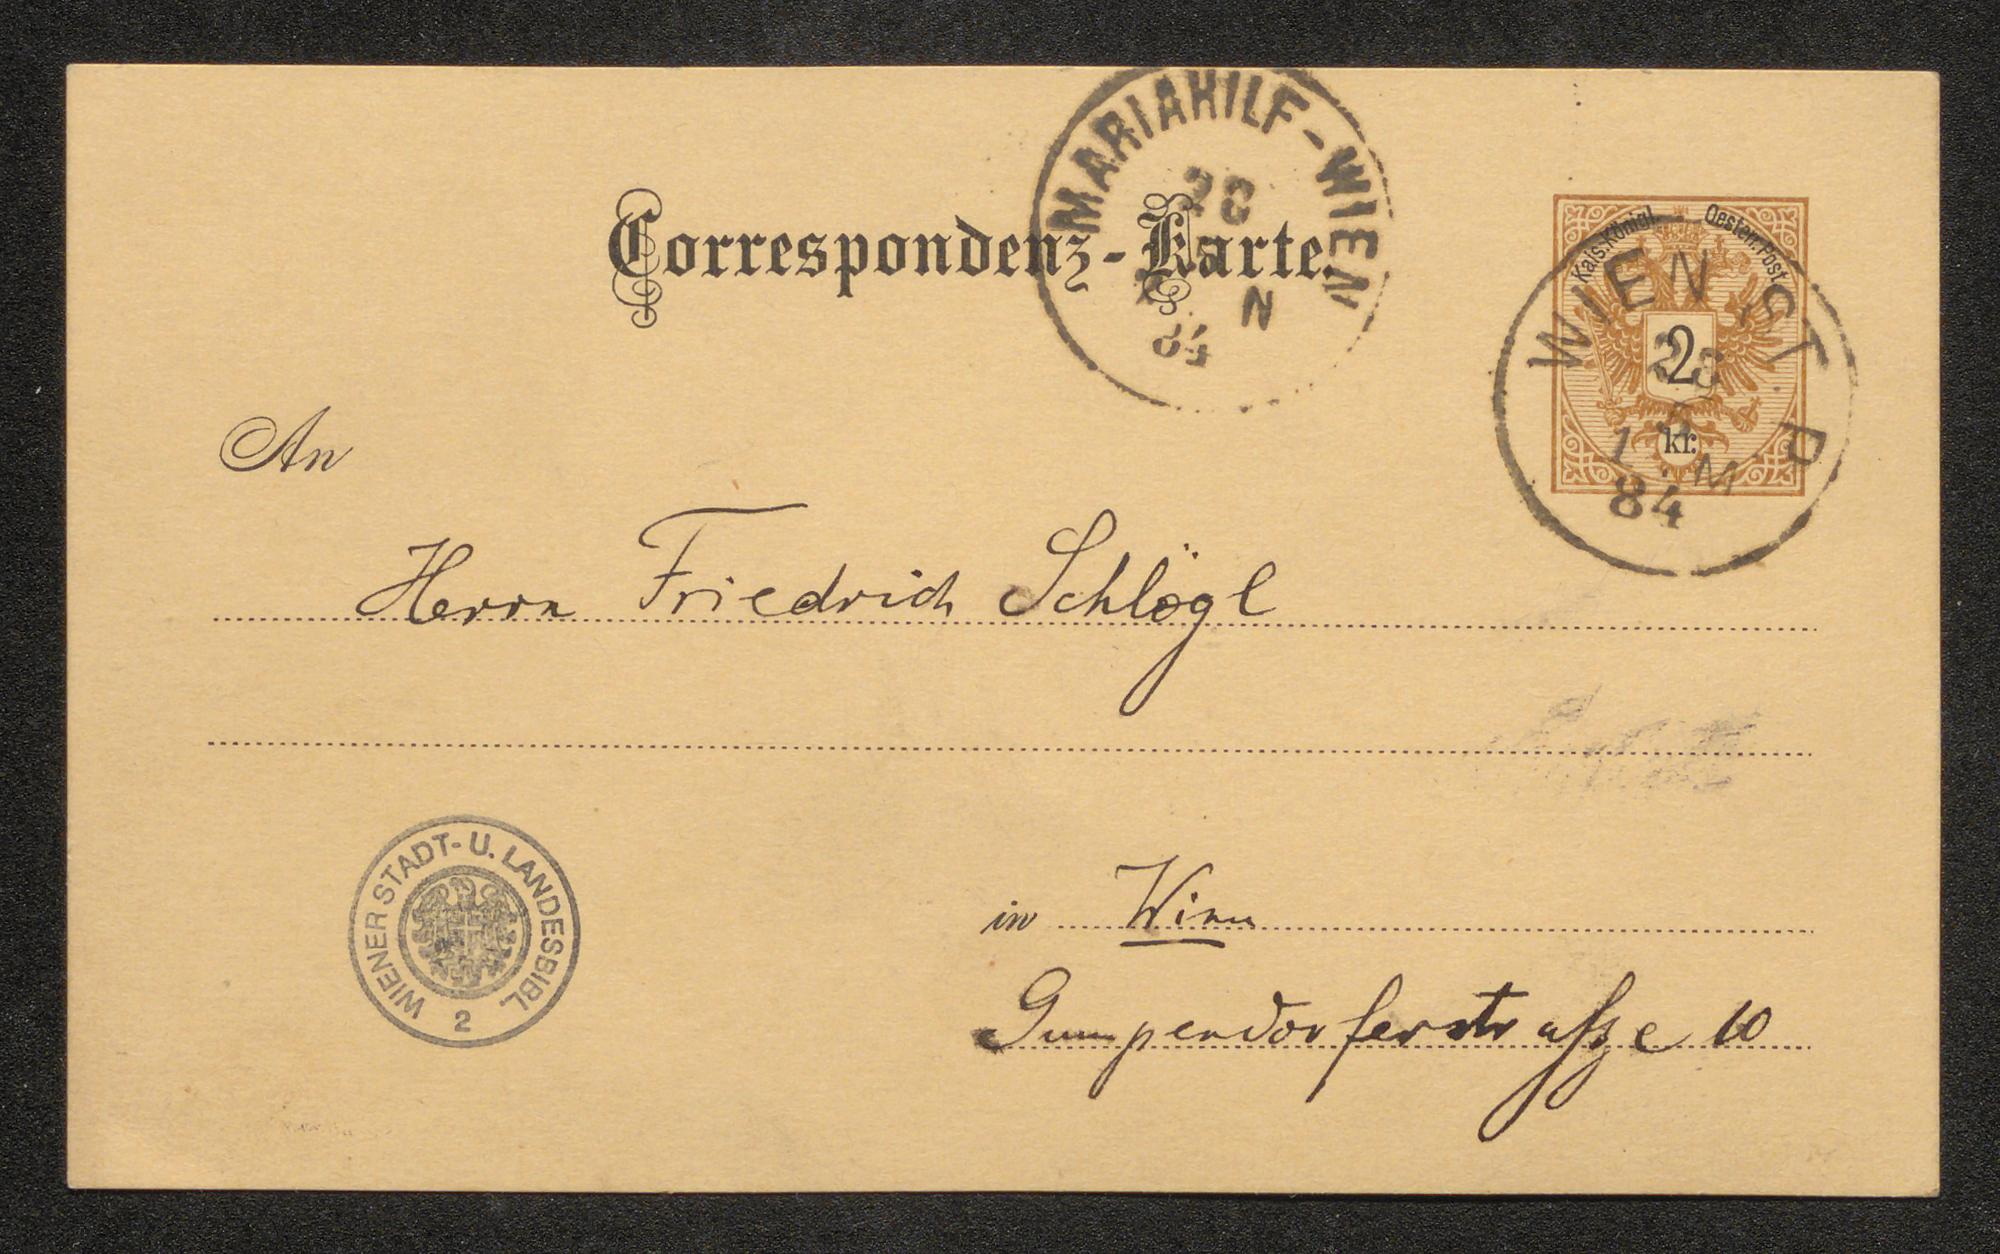 MARIAHILF-WIEN
N
84
Correspondenz-Karte.
Kais. Königl. Oesterr. Post
2
kr.
WIEN ST P
1 M
84
An
Herrn Friedrich Schlögl
in Wien
Gumpendorferstraſse 10
WIENER STADT- U. LANDESBIBL.
2